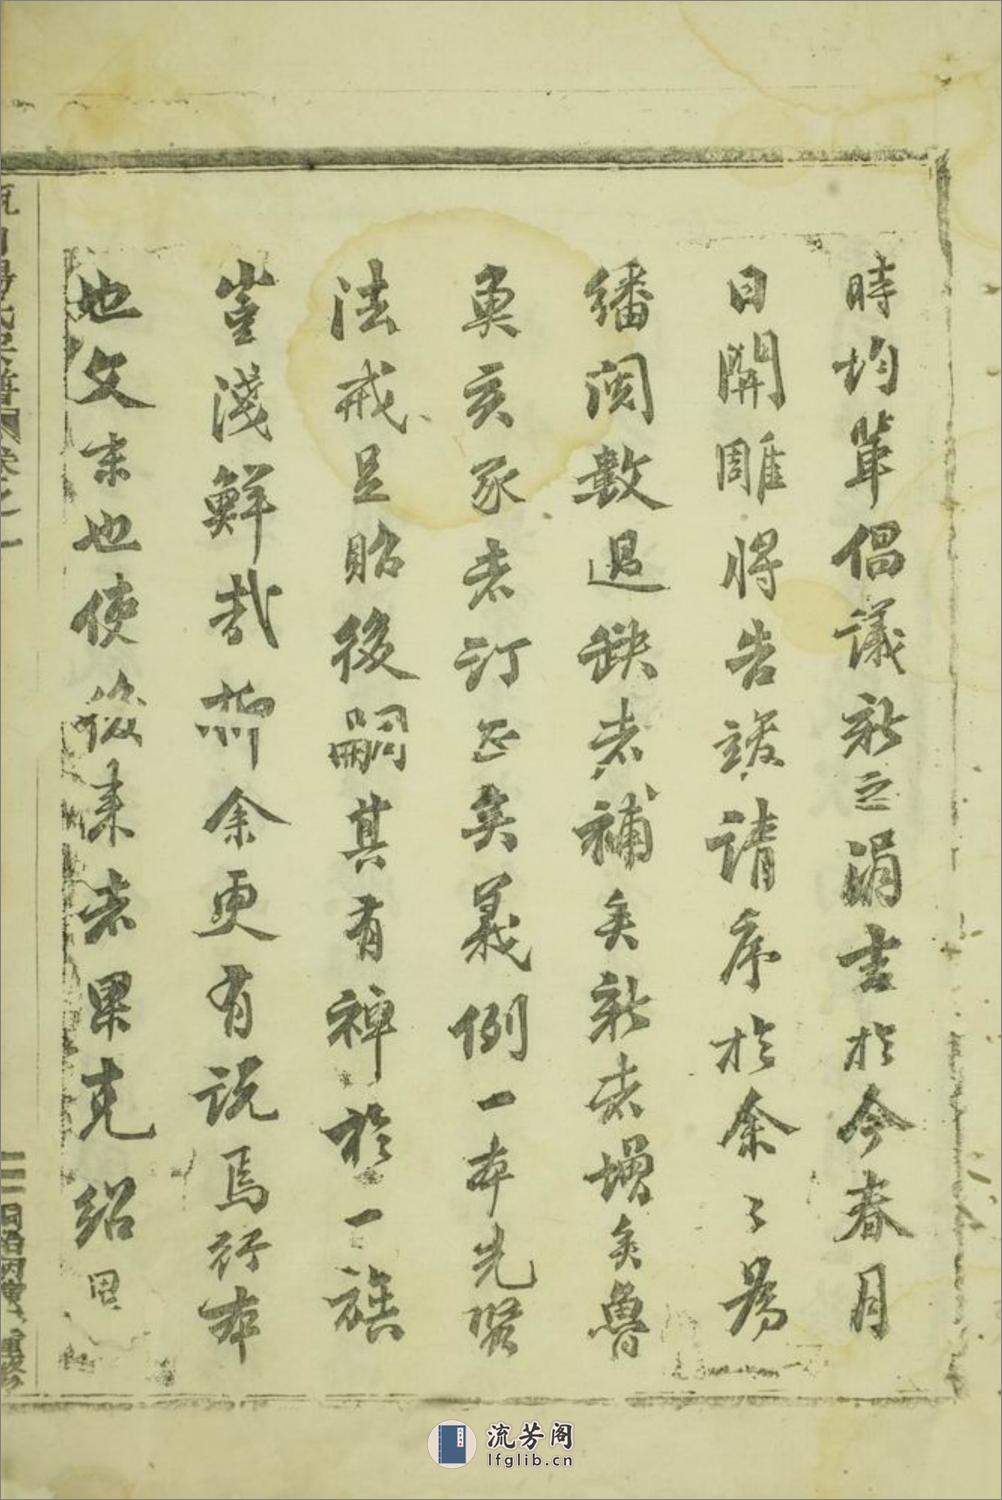 時均輩倡議新之涓吉於今春月
日開雕將告竣請序於余々為
繙閱數過缺者補矣新者增矣魯
魚亥豕者訂正矣義例一本先賢
法戒足貽後嗣其有裨於一族
豈淺鮮哉抑余更有說焉行本
也文末也使後來者果克紹
同治丙寅重修
流芳阁
lfglib.cn